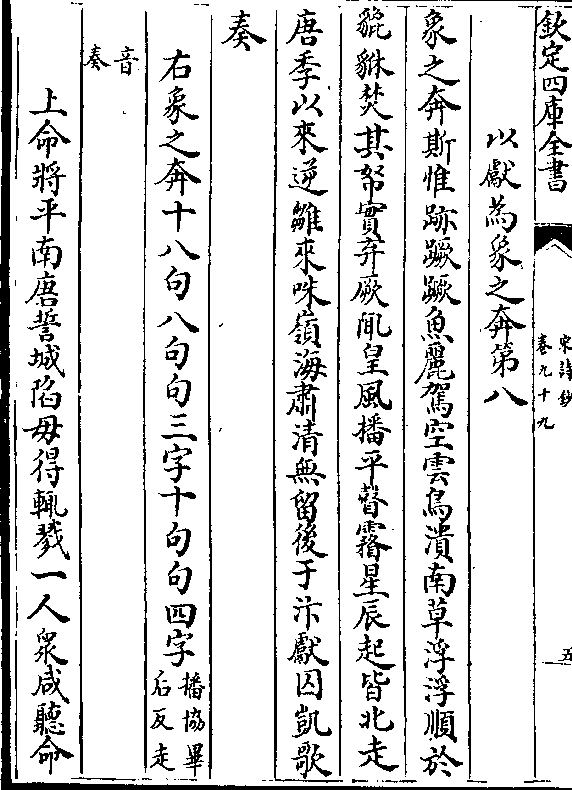 欽定四庫全書
宋詩鈔
卷九十九
五
以獻為象之奔第八
象之奔斯惟跡蹶蹶魚麗駕空雲鳥潰南草浮浮順於
貔貅焚其帑實弃厥瓬皇風播平瞽霿星辰起皆北走
唐季以來逆雛來咮嶺海肅清無留後于汴獻囚凱歌
奏
右象之奔十八句八句句三字十句句四字
播協畢
后反走
音
奏
上命將平南唐誓城陷毋得輒戮一人衆咸聽命